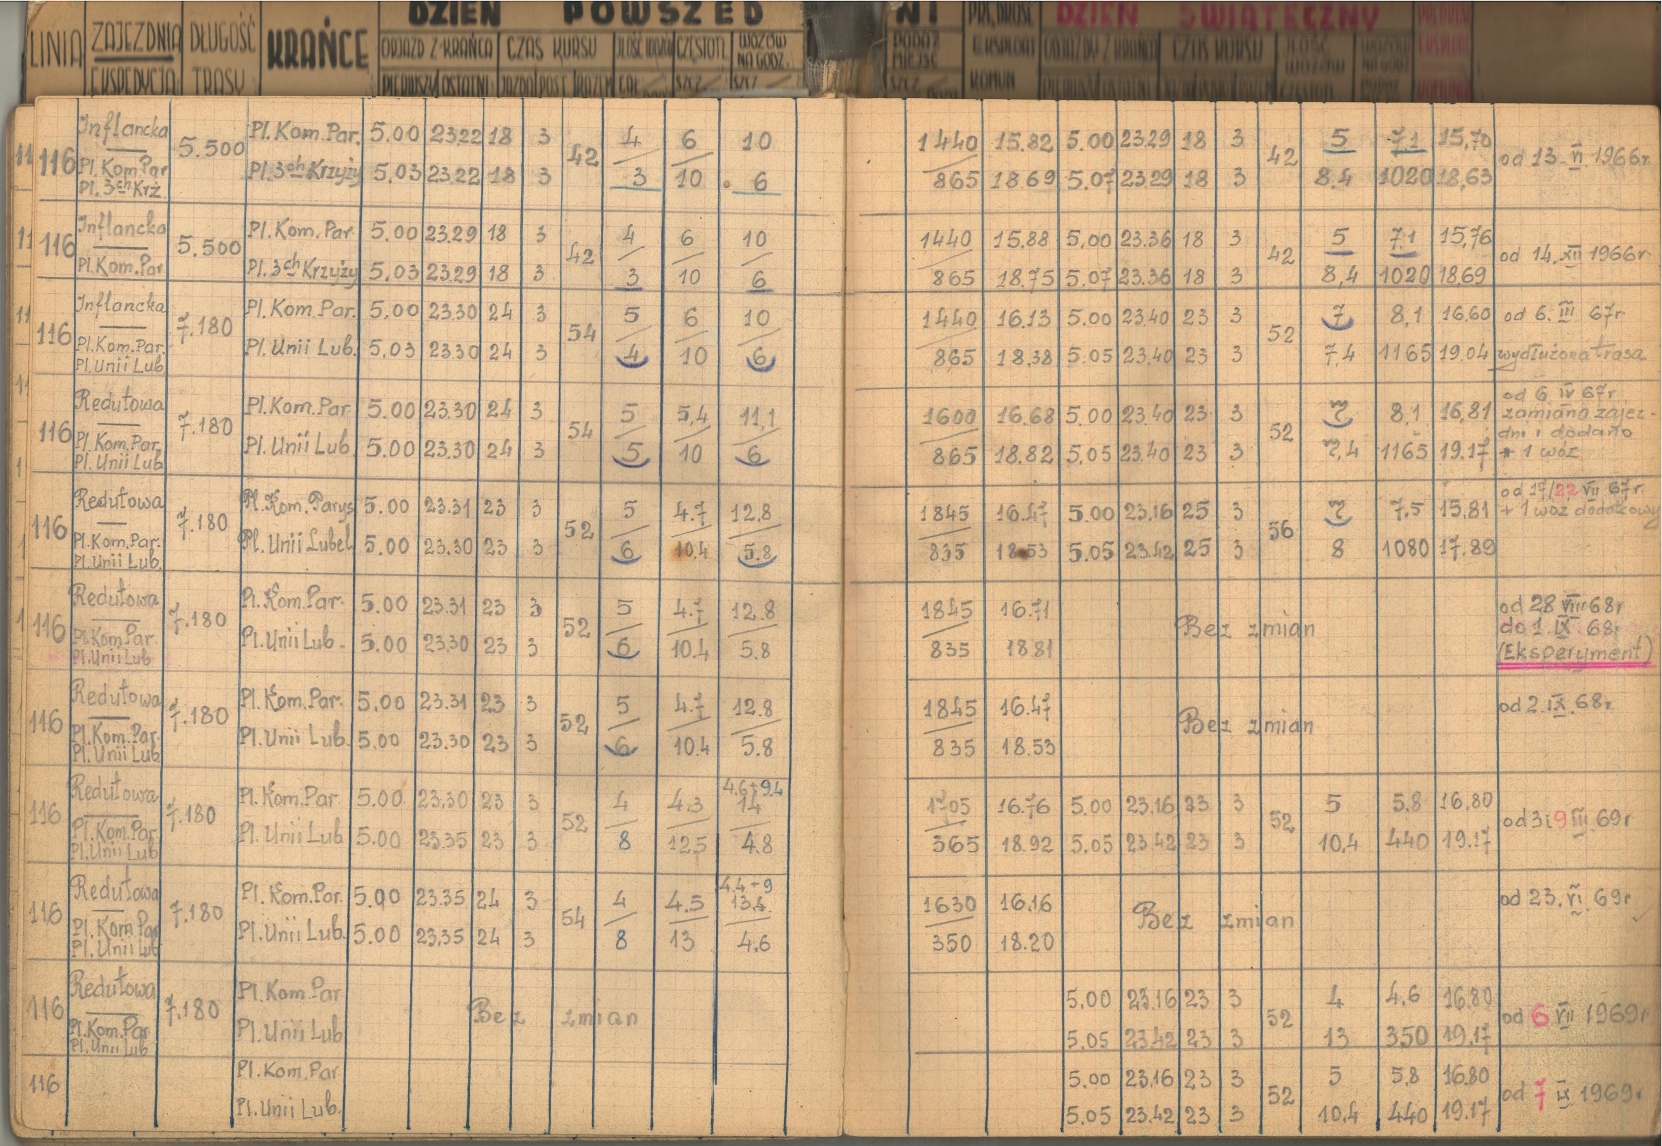 LINIA ZAJEZDNIA EKSPEDYCJA DŁUGOŚĆ TRASY KRAŃCE DZIEŃ POWSZEDNI DZIEŃ ŚWIĄTECZNY
ODJAZD Z KRAŃCA CZAS KURSU CZĘSTOTL. WOZÓW NA GODZ. PODAŻ MIEJSC ODJAZDY Z KRAŃCA CZAS KURSU ILOŚĆ WOZÓW
PIERWSZY OSTATNI JAZDA POST. RAZEM SZCZ SZCZ SZCZ KOMUN PIERWSZY OSTATNI
Inflancka Pl. Kom. Par. 5.00 23.22 18 3 4 6 10 1440 15,82 5.00 23.29 18 3 5 7.1 15,70
116 5.500 42 42 od 13. VI 1966r.
Pl. Kom. Par Pl. 3ch Krzyży 5,03 23.22 18 3 3 10 6 865 18.69 5.07 23.29 18 3 8,4 1020 18,63
Pl. 3ch Krz.
Inflancka Pl. Kom. Par. 5.00 23.29 18 3 4 6 10 1440 15,88 5,00 23.36 18 3 5 7.1 15,76
116 5.500 42 42 od 14. XII 1966r.
Pl. Kom. Par Pl. 3ch Krzyży 5.03 23.29 18 3 3 10 6 865 18.75 5.07 23.36 18 3 8,4 1020 18.69
Inflancka Pl. Kom. Par. 5.00 23.30 24 3 5 6 10 1440 16.13 5.00 23.40 23 3 7 8,1 16.60 od 6. III 67r
116 7.180 54 52
Pl. Kom. Par. Pl. Unii Lub. 5,03 23.30 24 3 4 10 6 865 18,38 5.05 23.40 23 3 7,4 1165 19.04 wydłużona trasa
Pl. Unii Lub
Redutowa Pl. Kom. Par 5.00 23.30 24 3 5 5,4 11,1 1600 16.68 5.00 23.40 23 3 7 8,1 16,81 od 6 IV 67r.
116 7.180 54 52 zamiana zajez-
Pl. Kom. Par. Pl. Unii Lub 5.00 23.30 24 3 5 10 6 865 18.82 5,05 23.40 23 3 7,4 1165 19.17 dni i dodano
Pl. Unii Lub + 1 wóz
Redutowa Pl. Kom. Parys 5.00 23.31 23 3 5 4.7 12.8 1845 16.47 5.00 23.16 25 3 7 7.5 15.81 od 17/22 VII 67r.
116 7.180 52 56 + 1 wóz dodatkowy
Pl. Kom. Par. Pl. Unii Lubel 5.00 23.30 23 3 6 10.4 5.8 835 18.53 5.05 23.42 25 3 8 1080 17.89
Pl. Unii Lub.
Redutowa Pl. Kom. Par. 5.00 23.31 23 3 5 4.7 12.8 1845 16.71 od 28 VIII 68r
116 7.180 52 Bez zmian do 1 IX 68r
Pl. Kom. Par. Pl. Unii Lub. 5.00 23.30 23 3 6 10.4 5.8 835 18.81 (Eksperyment)
Pl. Unii Lub
Redutowa Pl. Kom. Par. 5.00 23.31 23 3 5 4.7 12.8 1845 16.47 od 2. IX. 68r.
116 7.180 52 Bez zmian
Pl. Kom. Par. Pl. Unii Lub. 5.00 23.30 23 3 6 10.4 5.8 835 18.53
Pl. Unii Lub
4.6+9.4
Redutowa Pl. Kom. Par. 5.00 23.30 23 3 4 4.3 14 1705 16.76 5.00 23.16 23 3 5 5.8 16,80
116 7.180 52 52 od 3 i 9 III 69r
Pl. Kom. Par. Pl. Unii Lub 5.00 23.35 23 3 8 12.5 4.8 365 18.92 5.05 23.42 23 3 10,4 440 19.17
Pl. Unii Lub
4.4+9
Redutowa Pl. Kom. Par. 5.00 23.35 24 3 4 4.5 13.4 1630 16.16 od 23. VI. 69r
116 7.180 54 Bez zmian
Pl. Kom. Par Pl. Unii Lub. 5.00 23.35 24 3 8 13 4.6 350 18.20
Pl. Unii Lub
Redutowa Pl. Kom. Par 5,00 23.16 23 3 4 4,6 16.80
116 7.180 Bez zmian 52 od 6 VII 1969r
Pl. Kom. Par Pl. Unii Lub 5.05 23.42 23 3 13 350 19.17
Pl. Unii Lub
Pl. Kom. Par 5.00 23.16 23 3 5 5,8 16.80
116 52 od 7 IX 1969r.
Pl. Unii Lub. 5.05 23.42 23 3 10,4 440 19.17